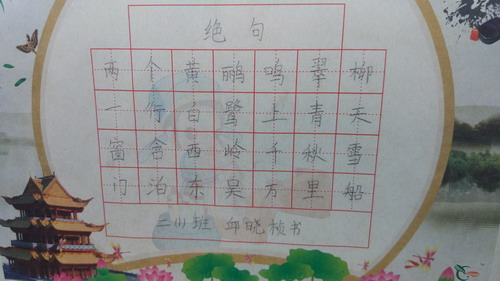 绝句
两个黄鹂鸣翠柳
一行白鹭上青天
窗含西岭千秋雪
门泊东吴万里船
二(1)班 邱晓桢书